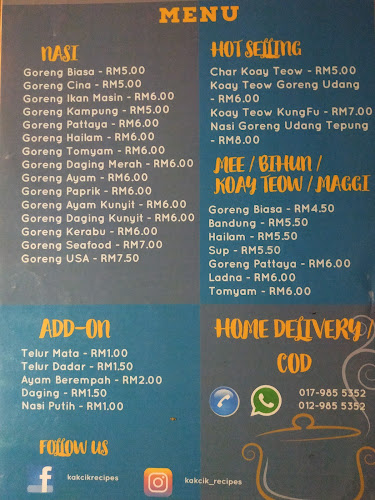 MENU
NASI
Goreng Biasa - RM5.00
Goreng Cina - RM5.00
Goreng Ikan Masin - RM6.00
Goreng Kampung - RM5.00
Goreng Pattaya - RM6.00
Goreng Hailam - RM6.00
Goreng Tomyam - RM6.00
Goreng Daging Merah - RM6.00
Goreng Ayam - RM6.00
Goreng Paprik - RM6.00
Goreng Ayam Kunyit - RM6.00
Goreng Daging Kunyit - RM6.00
Goreng Kerabu - RM6.00
Goreng Seafood - RM7.00
Goreng USA - RM7.50
HOT SELLING
Char Koay Teow - RM5.00
Koay Teow Goreng Udang
- RM6.00
Koay Teow KungFu - RM7.00
Nasi Goreng Udang Tepung
- RM8.00
MEE / BIHUN /
KOAY TEOW / MAGGI
Goreng Biasa - RM4.50
Bandung - RM5.50
Hailam - RM5.50
Sup - RM5.50
Goreng Pattaya - RM6.00
Ladna - RM6.00
Tomyam - RM6.00
ADD-ON
Telur Mata - RM1.00
Telur Dadar - RM1.50
Ayam Berempah - RM2.00
Daging - RM1.50
Nasi Putih - RM1.00
FOLLOW US
kakcikrecipes
kakcik_recipes
HOME DELIVERY /
COD
017-985 5352
012-985 5352